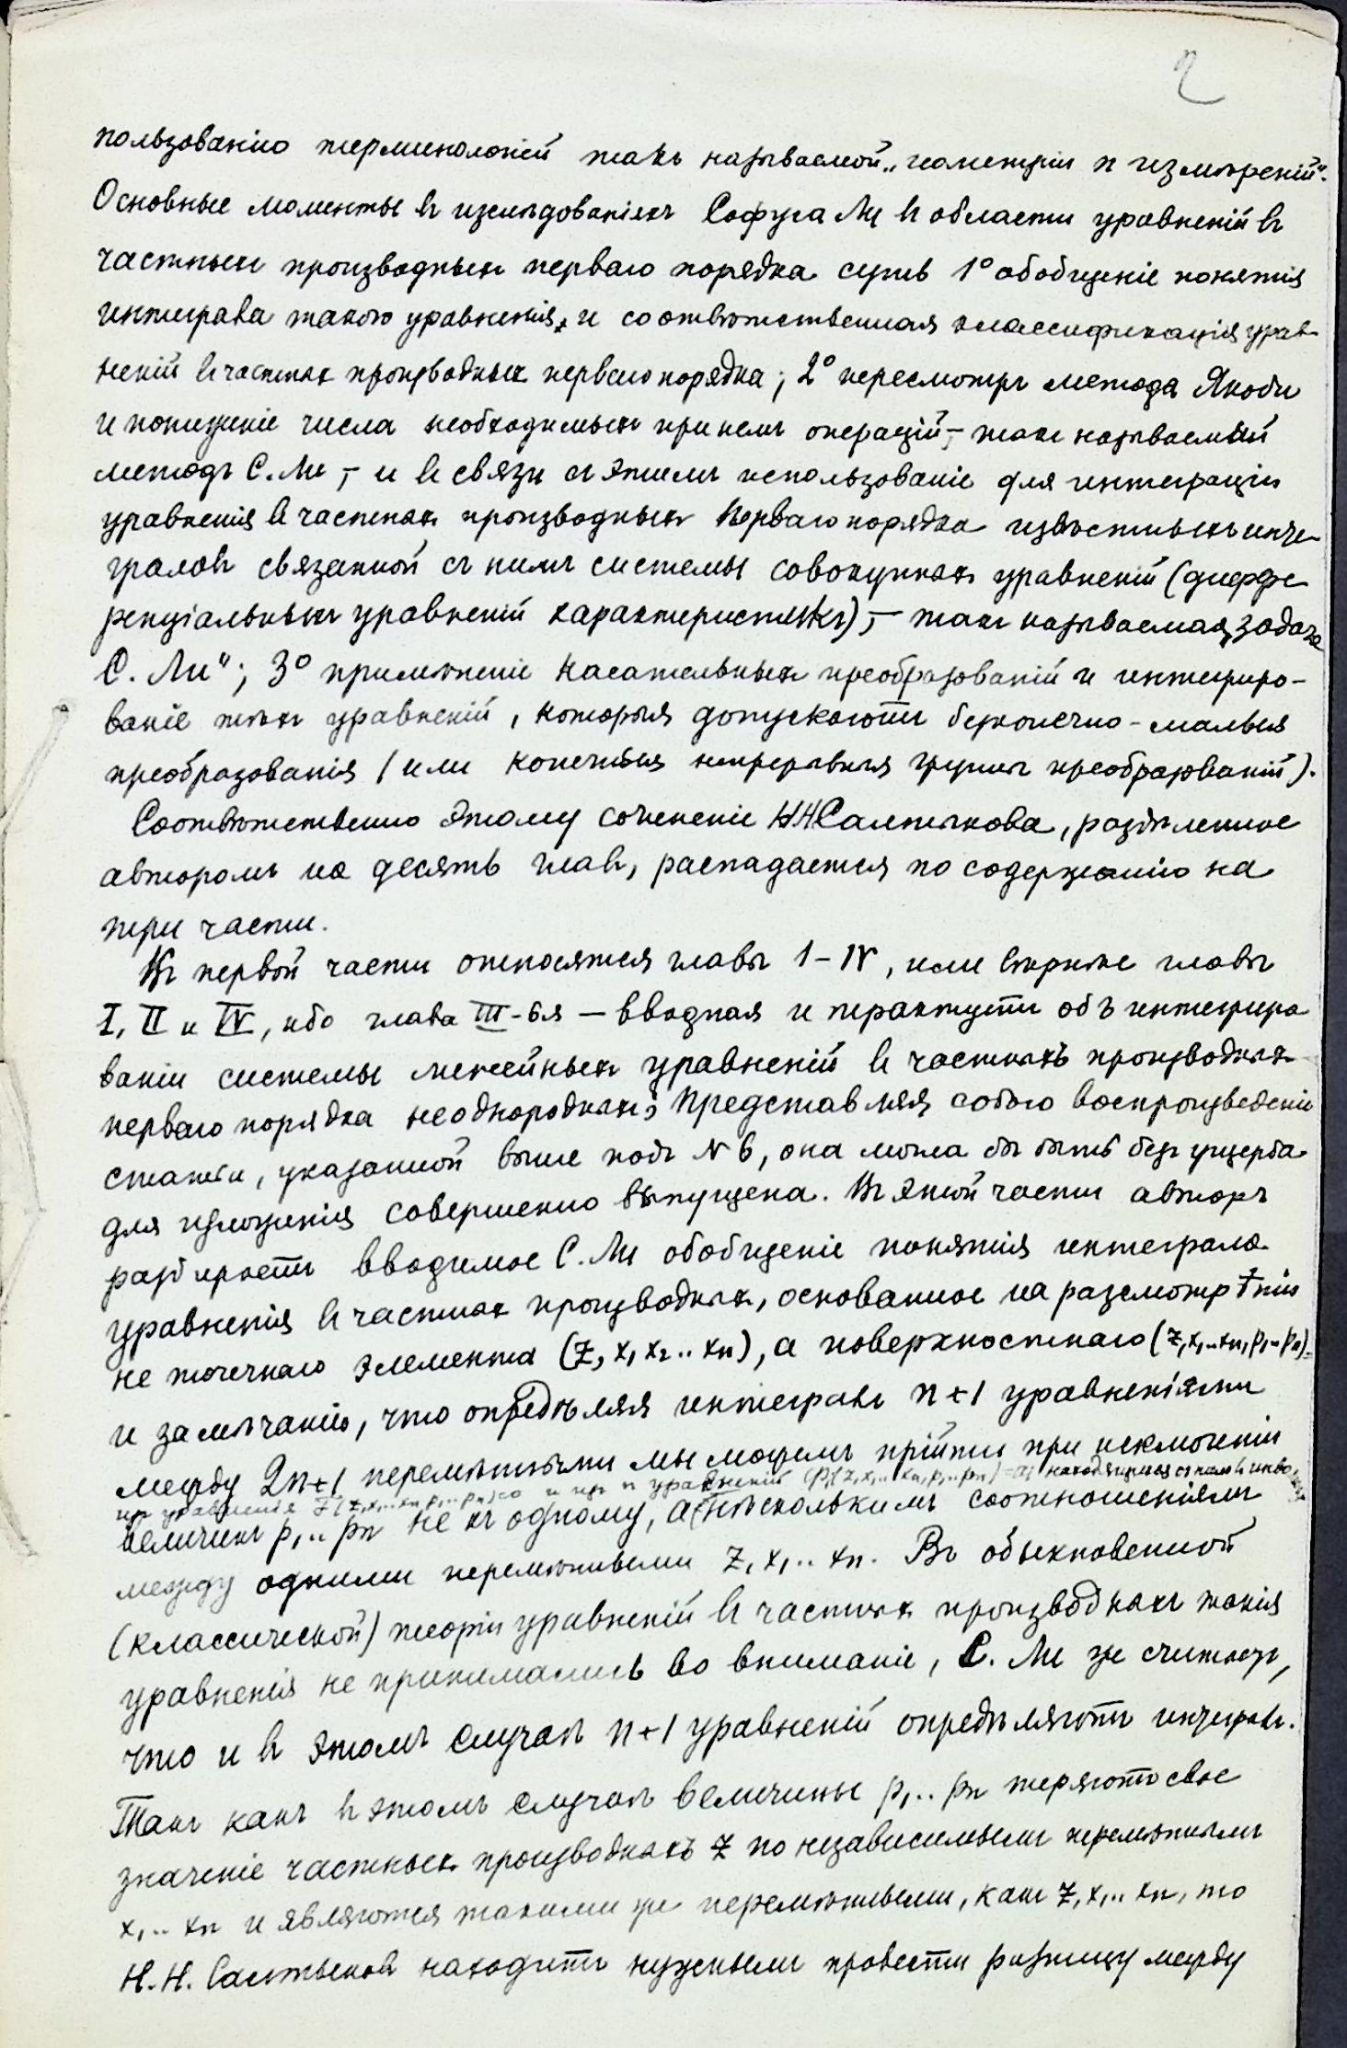 2
пользованію терминологіей такъ называемой „геометріи n измѣреній“.
Основные моменты въ изслѣдованіяхъ Софуса Ли въ области уравненій въ
частныхъ производныхъ перваго порядка суть 1° обобщеніе понятія
интеграла такого уравненія, и соотвѣтственная классификація урав-
неній въ частныхъ производныхъ перваго порядка; 2° пересмотръ метода Якоби
и пониженіе числа необходимыхъ при немъ операцій, – такъ называемый
методъ С. Ли, – и въ связи съ этимъ использованіе для интеграціи
уравненія въ частныхъ производныхъ перваго порядка извѣстныхъ инте-
граловъ связанной съ нимъ системы совокупныхъ уравненій (диффе-
ренціальныхъ уравненій характеристикъ), – такъ называемая „задача
С. Ли“; 3° примѣненіе касательныхъ преобразованій и интегриро-
ваніе тѣхъ уравненій, которыя допускаютъ безконечно-малыя
преобразованія (или конечныя непрерывныя группы преобразованій).
Соотвѣтственно этому сочиненіе Н.Н. Салтыкова, раздѣленное
авторомъ на десять главъ, распадается по содержанію на
три части.
Къ первой части относятся главы I–IV, или вѣрнѣе главы
I, II и IV, ибо глава III-ья – вводная и трактуетъ объ интегриро
ваніи системы линейныхъ уравненій въ частныхъ производныхъ
перваго порядка неоднородныхъ; представляя собою воспроизведеніе
статьи, указанной выше подъ № 6, она могла бы быть безъ ущерба
для изложенія совершенно выпущена. Въ этой части авторъ
разбираетъ вводимое С. Ли обобщеніе понятія интеграла
уравненія въ частныхъ производныхъ, основанное на разсмотрѣніи
не точечнаго элемента (z, x₁ x₂ .. xn), а поверхностнаго (z, x₁ .. xn, p₁ .. pn)
и замѣчаніи, что опредѣляя интегралъ n+1 уравненіями
между 2n+1 перемѣнными мы можемъ прійти при исключеніи
изъ уравненія F(z, x₁ .. xn, p₁ .. pn)=0 и изъ n уравненій находящихся съ нимъ въ
величинъ p₁ .. pn не къ одному, а нѣсколькимъ соотношеніямъ
между одними перемѣнными z, x₁ .. xn. Въ обыкновенной
(классической) теоріи уравненій въ частныхъ производныхъ такія
уравненія не принимались во вниманіе, С. Ли же считаетъ,
что и въ этомъ случаѣ n+1 уравненій опредѣляютъ интегралъ.
Такъ какъ въ этомъ случаѣ величины p₁ .. pn теряютъ свое
значеніе частныхъ производныхъ z по независимымъ перемѣннымъ
x₁ .. xn и являются такими же перемѣнными, какъ z, x₁ .. xn, то
Н.Н. Салтыковъ находитъ нужнымъ провести разницу между